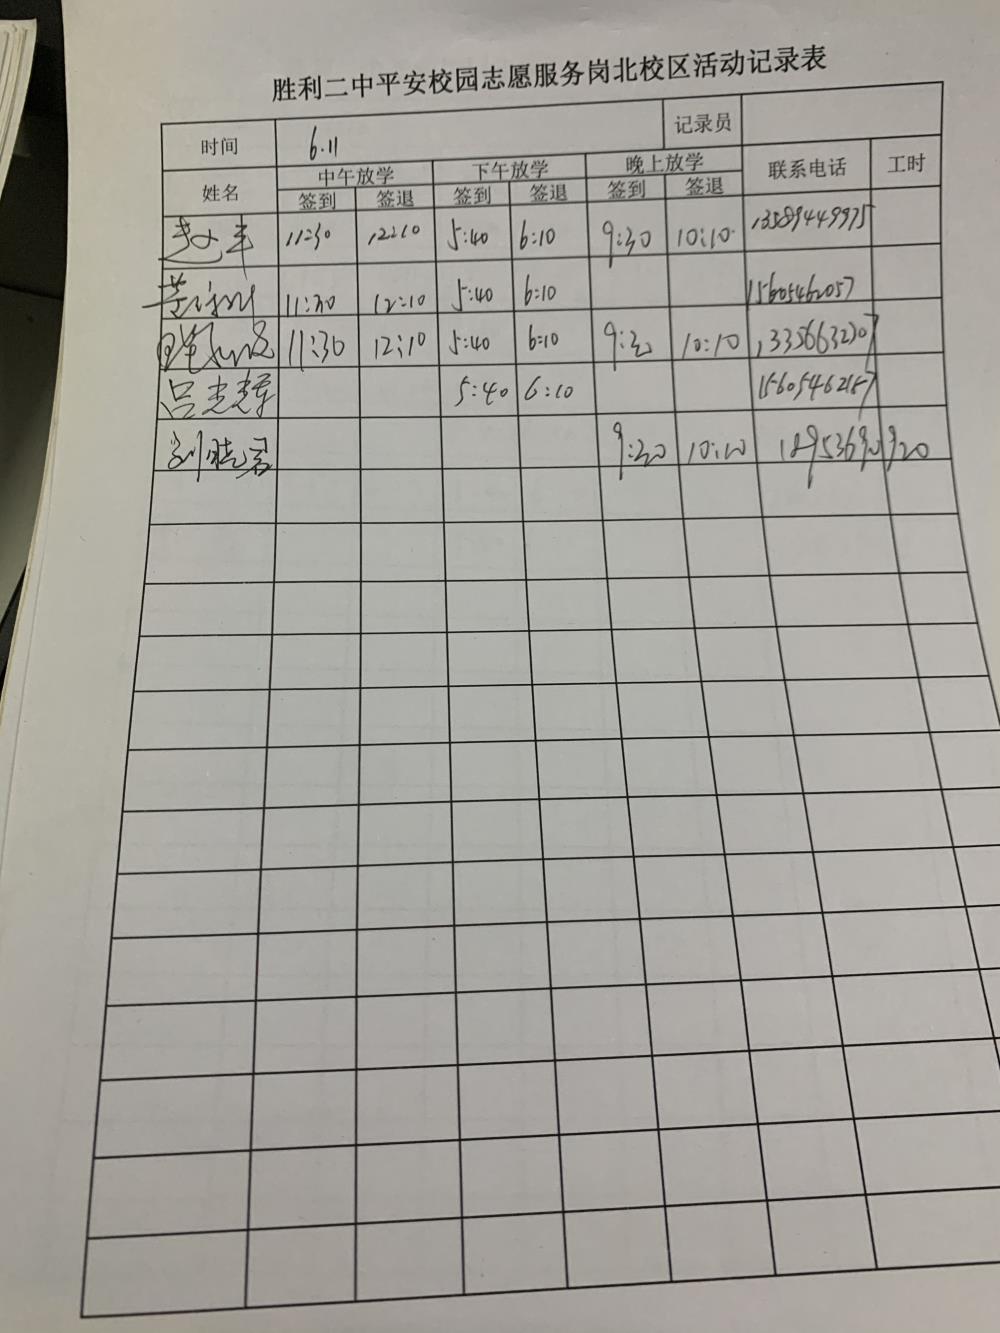 胜利二中平安校园志愿服务岗北校区活动记录表
时间 6.11 记录员
姓名 中午放学 下午放学 晚上放学 联系电话 工时
签到 签退 签到 签退 签到 签退
11:30 12:10 5:40 6:10 9:30 10:10 13589449975
11:30 12:10 5:40 6:10 15605462057
11:30 12:10 5:40 6:10 9:30 10:10 13356632307
吕光辉 5:40 6:10 15605462157
刘晓君 9:30 10:10 18953690920